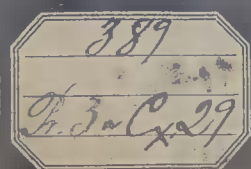 389
Fr. 3 - Cx. 29